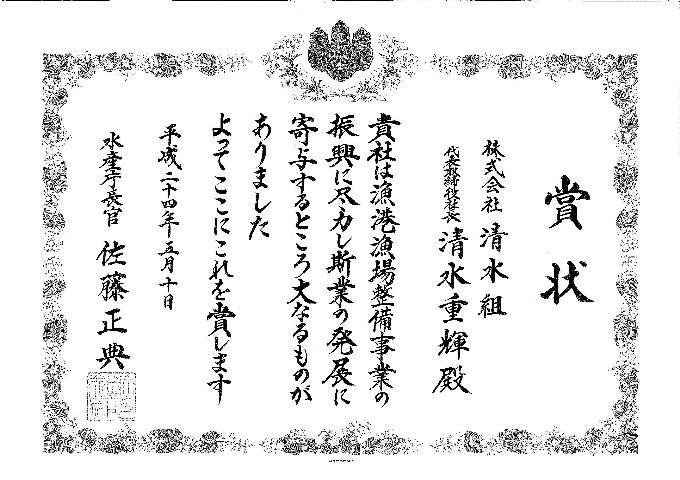 賞状
株式会社 清水組
代表取締役社長 清水重輝殿
貴社は漁港漁場整備事業の
振興に尽力し斯業の発展に
寄与するところ大なるものが
ありました
よってここにこれを賞します
平成二十四年五月十日
水産庁長官 佐藤正典